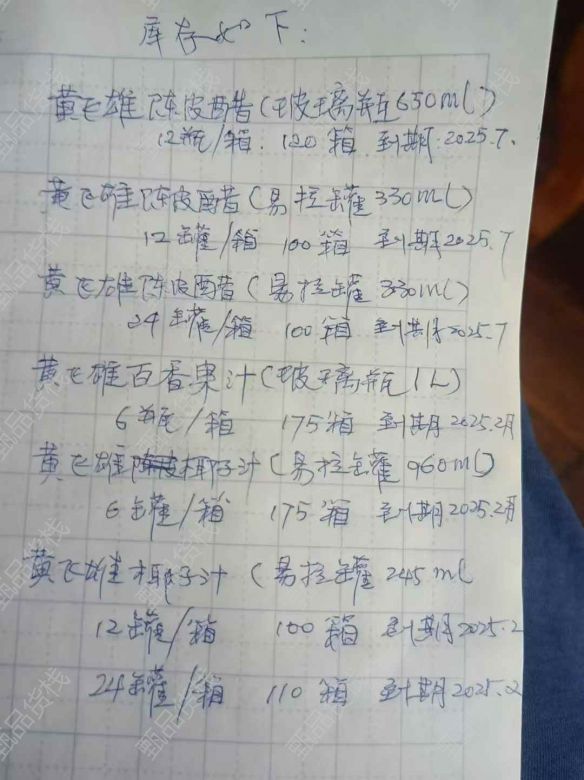 库存如下:
黄飞雄陈皮醋(玻璃瓶650ml)
12瓶/箱. 120箱 到期:2025.7.
黄飞雄陈皮醋(易拉罐330ml)
12罐/箱 100箱 到期2025.7
黄飞雄陈皮醋(易拉罐330ml)
24罐/箱 100箱 到期2025.7
黄飞雄百香果汁(玻璃瓶1L)
6瓶/箱 175箱 到期2025.2月
黄飞雄椰子汁(易拉罐960ml)
6罐/箱 175箱 到期2025.2月
黄飞雄椰子汁(易拉罐245ml
12罐/箱 100箱 到期2025.2
24罐/箱 110箱 到期2025.2
甄品货栈